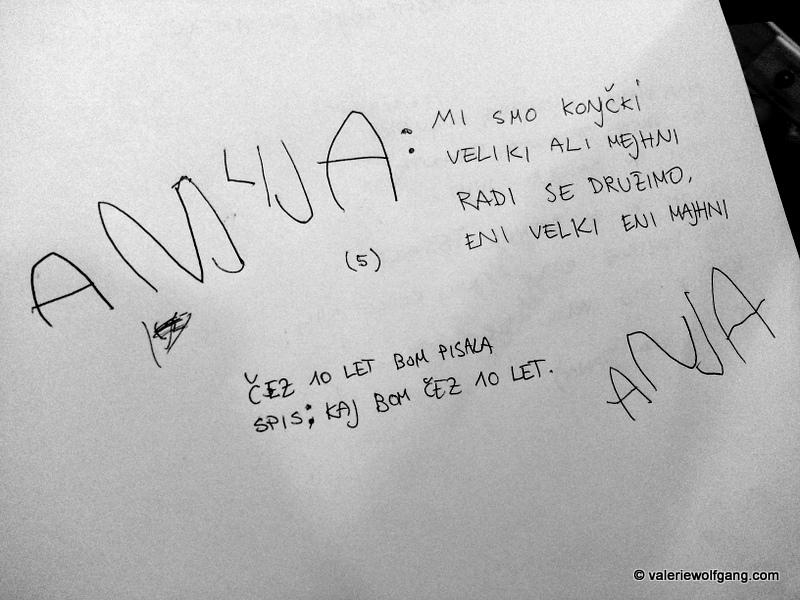 ANJA:
MI SMO KONJČKI
VELIKI ALI MEJHNI
RADI SE DRUŽIMO,
ENI VELKI ENI MAJHNI
(5)
ČEZ 10 LET BOM PISALA
SPIS: KAJ BOM ČEZ 10 LET.
ANJA
© valeriewolfgang.com